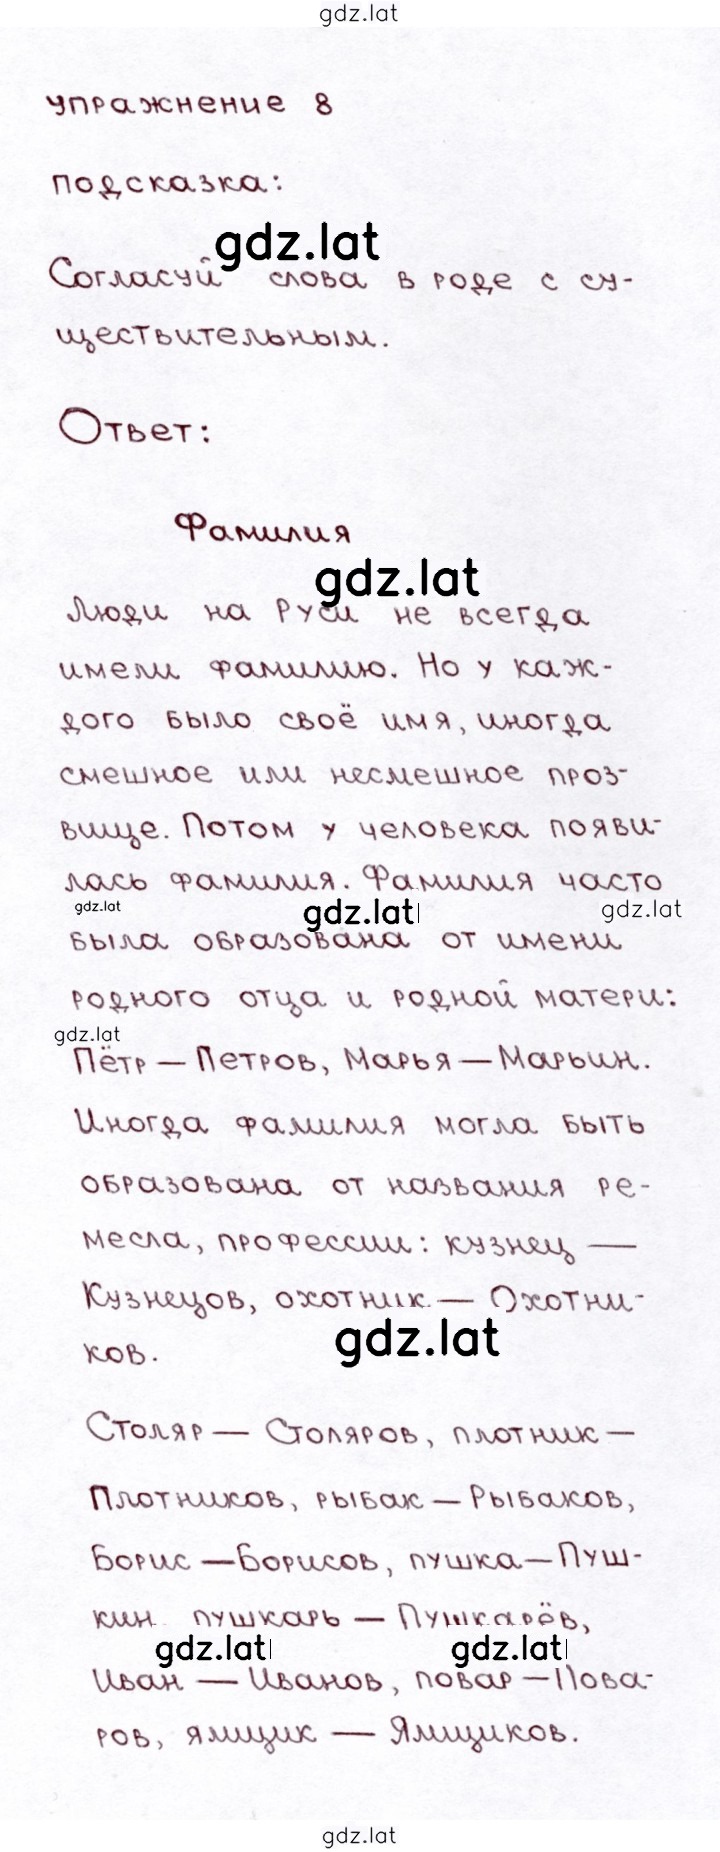 gdz.lat
упражнение 8
подсказка:
gdz.lat
Согласуй слова в роде с су-
ществительным.
Ответ:
Фамилия
gdz.lat
Люди на Руси не всегда
имели фамилию. Но у каж-
дого было своё имя, иногда
смешное или несмешное проз-
вище. Потом у человека появи-
лась фамилия. Фамилия часто
gdz.lat gdz.lat gdz.lat
была образована от имени
родного отца и родной матери:
gdz.lat
Пётр — Петров, Марья — Марьин.
Иногда фамилия могла быть
образована от названия ре-
месла, профессии: кузнец —
Кузнецов, охотник — Охотни-
gdz.lat
ков.
Столяр — Столяров, плотник —
Плотников, рыбак — Рыбаков,
Борис — Борисов, пушка — Пуш-
кин пушкарь — Пушкарёв,
gdz.lat gdz.lat
Иван — Иванов, повар — Пова-
ров, ямщик — Ямщиков.
gdz.lat